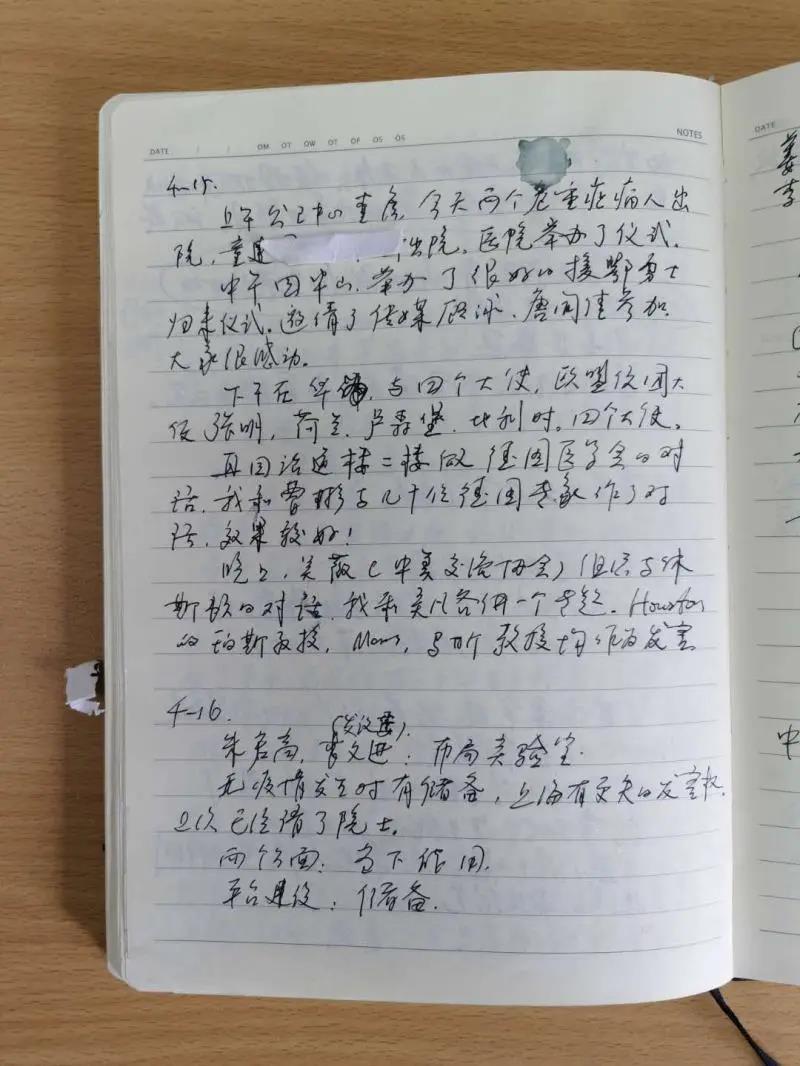 DATE
OM OT OW OT OF OS OS
NOTES
DATE
4-15.
上午公卫中心查房,今天两个危重症病人出
院,童建 出院,医院举办了仪式。
中午回华山,举办了很好的援鄂勇士
归来仪式。邀请了传媒 唐闻佳参加。
大家很感动。
下午在华 与四个大使,欧盟使团大
使张明,荷兰、卢森堡、比利时。四个大使。
再回 楼二楼做德国医学会的对
话,我和曹彬与几十位德国专家作了对
话,效果较好!
晚上,美 (中美交流协会)组织与休
斯顿的对话,我和 各讲一个专题。Houston
的 斯教授, 教授均作为发言
4-16.
(发改委)
朱 高, 文进:布局实验室
无疫情发生时有储备,上海有更大的发言权,
上次已经请了院士。
两个方面:当下能用。
平台建设:储备。
姜
李
中